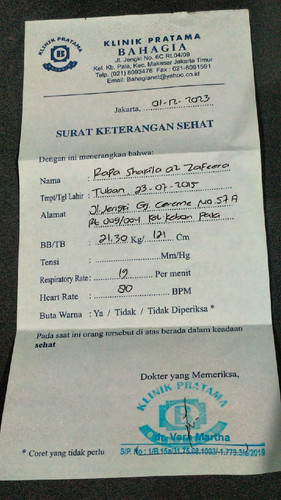 KLINIK PRATAMA
BAHAGIA
Jl. Jengki No. 6C Rt.04/09
Kel. Kb. Pala, Kec. Makasar Jakarta Timur
Telp. (021) 8093476 Fax : 021-8091561
Email: Bahagianet@yahoo.co.id
KLINIK PRATAMA
B
BAHAGIA
Jakarta, 01-12-2023
SURAT KETERANGAN SEHAT
Dengan ini menerangkan bahwa:
Nama : Rafa Shaqila az Zafeera
Tmpt/Tgl Lahir : Tuban 23-07-2015
Alamat : Jl. Jengki Gg. Cereme No 57 A
Rt 009/004 Kel. Kebon Pala
BB/TB : 21.30 Kg/ 121 Cm
Tensi : Mm/Hg
Respiratory Rate : 19 Per menit
Heart Rate : 80 BPM
Buta Warna : Ya / Tidak / Tidak Diperiksa *
Pada saat ini orang tersebut di atas berada dalam keadaan
sehat
Dokter yang Memeriksa,
KLINIK PRATAMA
B
dr. Vera Martha
* Coret yang tidak perlu